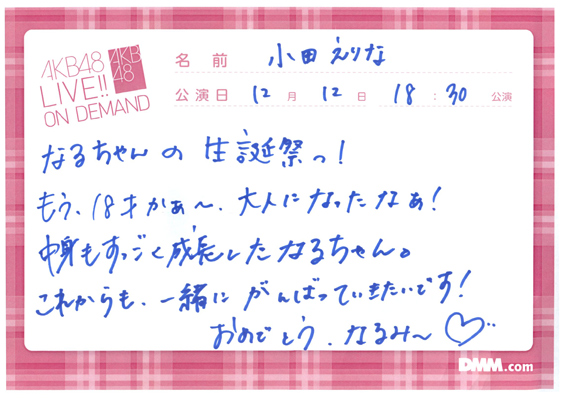 AKB48
LIVE!!
ON DEMAND
AKB
48
名前 小田えりな
公演日 12月12日 18:30 公演
なるちゃんの生誕祭っ!
もう、18才かぁ〜、大人になったなぁ!
中身もすっごく成長したなるちゃん。
これからも、一緒にがんばっていきたいです!
おめでとう、なるみ〜♡
DMM.com